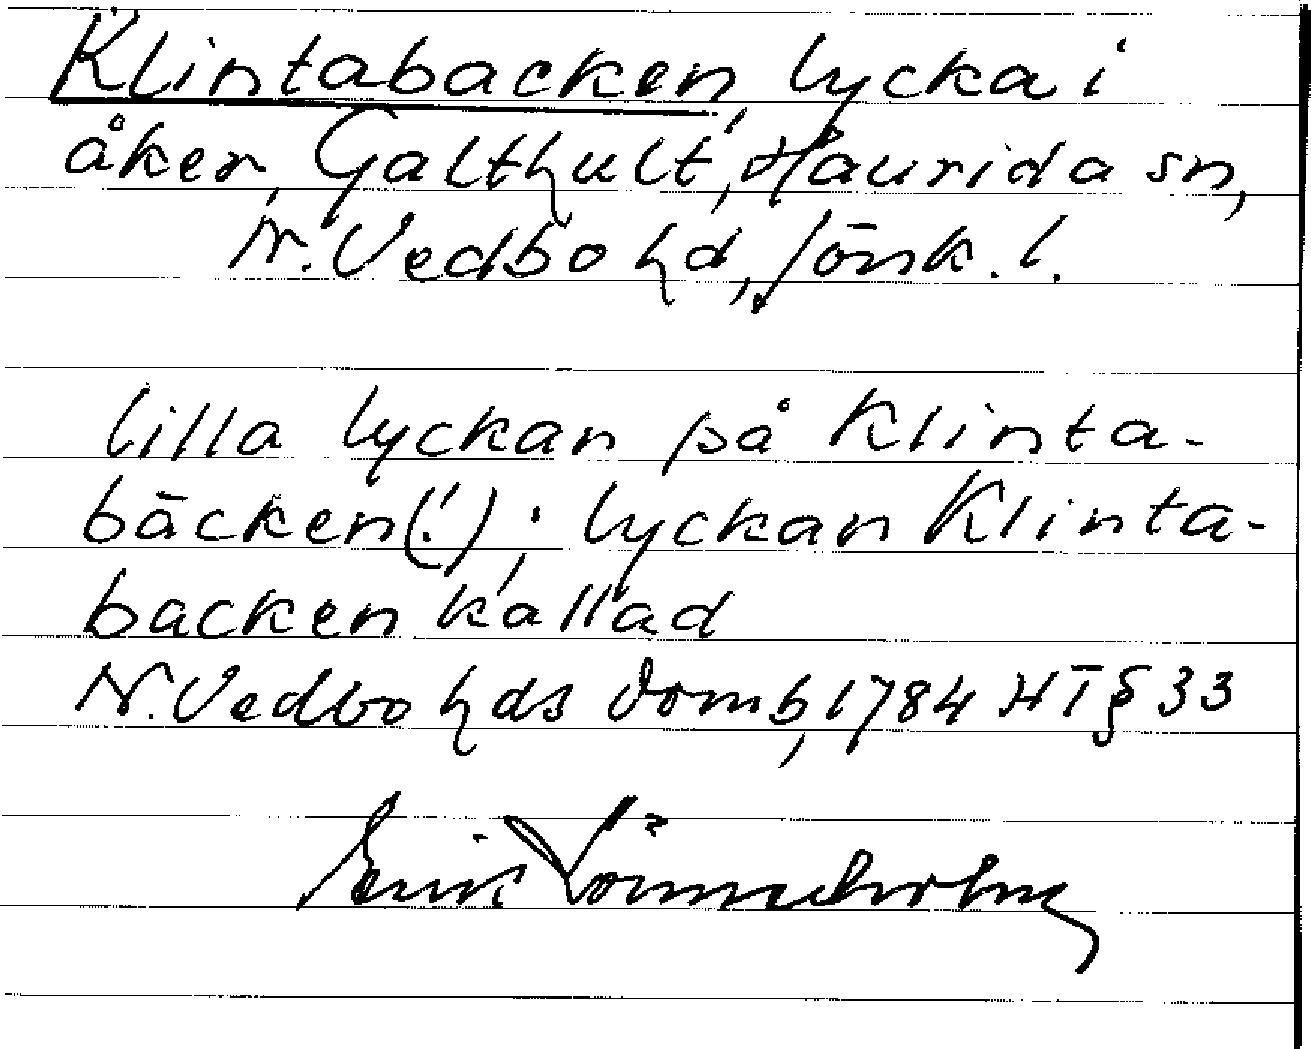 Klintabacken, lycka i
åker, Galthult, Haurida sn,
N. Vedbo hd, Jönk. l.
lilla lyckan på Klinta-
bäcken(!); lyckan Klinta-
backen kallad
N. Vedbo hds domb, 1784 HT § 33
Erik